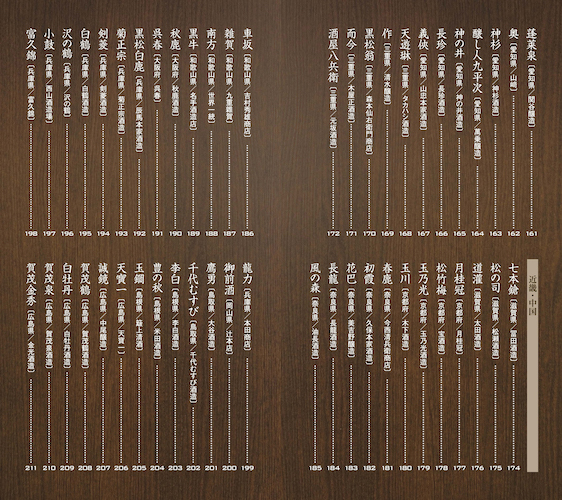 蓬莱泉〔愛知県／関谷醸造〕 161
奥〔愛知県／山崎〕 162
神杉〔愛知県／神杉酒造〕 163
醸し人九平次〔愛知県／萬乗醸造〕 164
神の井〔愛知県／神の井酒造〕 165
長珍〔愛知県／長珍酒造〕 166
義侠〔愛知県／山忠本家酒造〕 167
天遊琳〔三重県／タカハシ酒造〕 168
作〔三重県／清水醸造〕 169
黒松翁〔三重県／森本仙右衛門商店〕 170
而今〔三重県／木屋正酒造〕 171
酒屋八兵衛〔三重県／元坂酒造〕 172
近畿・中国
七本鎗〔滋賀県／冨田酒造〕 174
松の司〔滋賀県／松瀬酒造〕 175
道灌〔滋賀県／太田酒造〕 176
月桂冠〔京都府／月桂冠〕 177
松竹梅〔京都府／宝酒造〕 178
玉乃光〔京都府／玉乃光酒造〕 179
玉川〔京都府／木下酒造〕 180
春鹿〔奈良県／今西清兵衛商店〕 181
初霞〔奈良県／久保本家酒造〕 182
花巴〔奈良県／美吉野醸造〕 183
長龍〔奈良県／長龍酒造〕 184
風の森〔奈良県／油長酒造〕 185
車坂〔和歌山県／吉村秀雄商店〕 186
雑賀〔和歌山県／九重雜賀〕 187
南方〔和歌山県／世界一統〕 188
黒牛〔和歌山県／名手酒造店〕 189
秋鹿〔大阪府／秋鹿酒造〕 190
呉春〔大阪府／呉春〕 191
黒松白鹿〔兵庫県／辰馬本家酒造〕 192
菊正宗〔兵庫県／菊正宗酒造〕 193
剣菱〔兵庫県／剣菱酒造〕 194
白鶴〔兵庫県／白鶴酒造〕 195
沢の鶴〔兵庫県／沢の鶴〕 196
小鼓〔兵庫県／西山酒造場〕 197
富久錦〔兵庫県／富久錦〕 198
龍力〔兵庫県／本田商店〕 199
御前酒〔岡山県／辻本店〕 200
鷹勇〔鳥取県／大谷酒造〕 201
千代むすび〔鳥取県／千代むすび酒造〕 202
李白〔島根県／李白酒造〕 203
豊の秋〔島根県／米田酒造〕 204
玉鋼〔島根県／簸上清酒〕 205
天寶一〔広島県／天寶一〕 206
誠鏡〔広島県／中尾醸造〕 207
賀茂鶴〔広島県／賀茂鶴酒造〕 208
白牡丹〔広島県／白牡丹酒造〕 209
賀茂泉〔広島県／賀茂泉酒造〕 210
賀茂金秀〔広島県／金光酒造〕 211